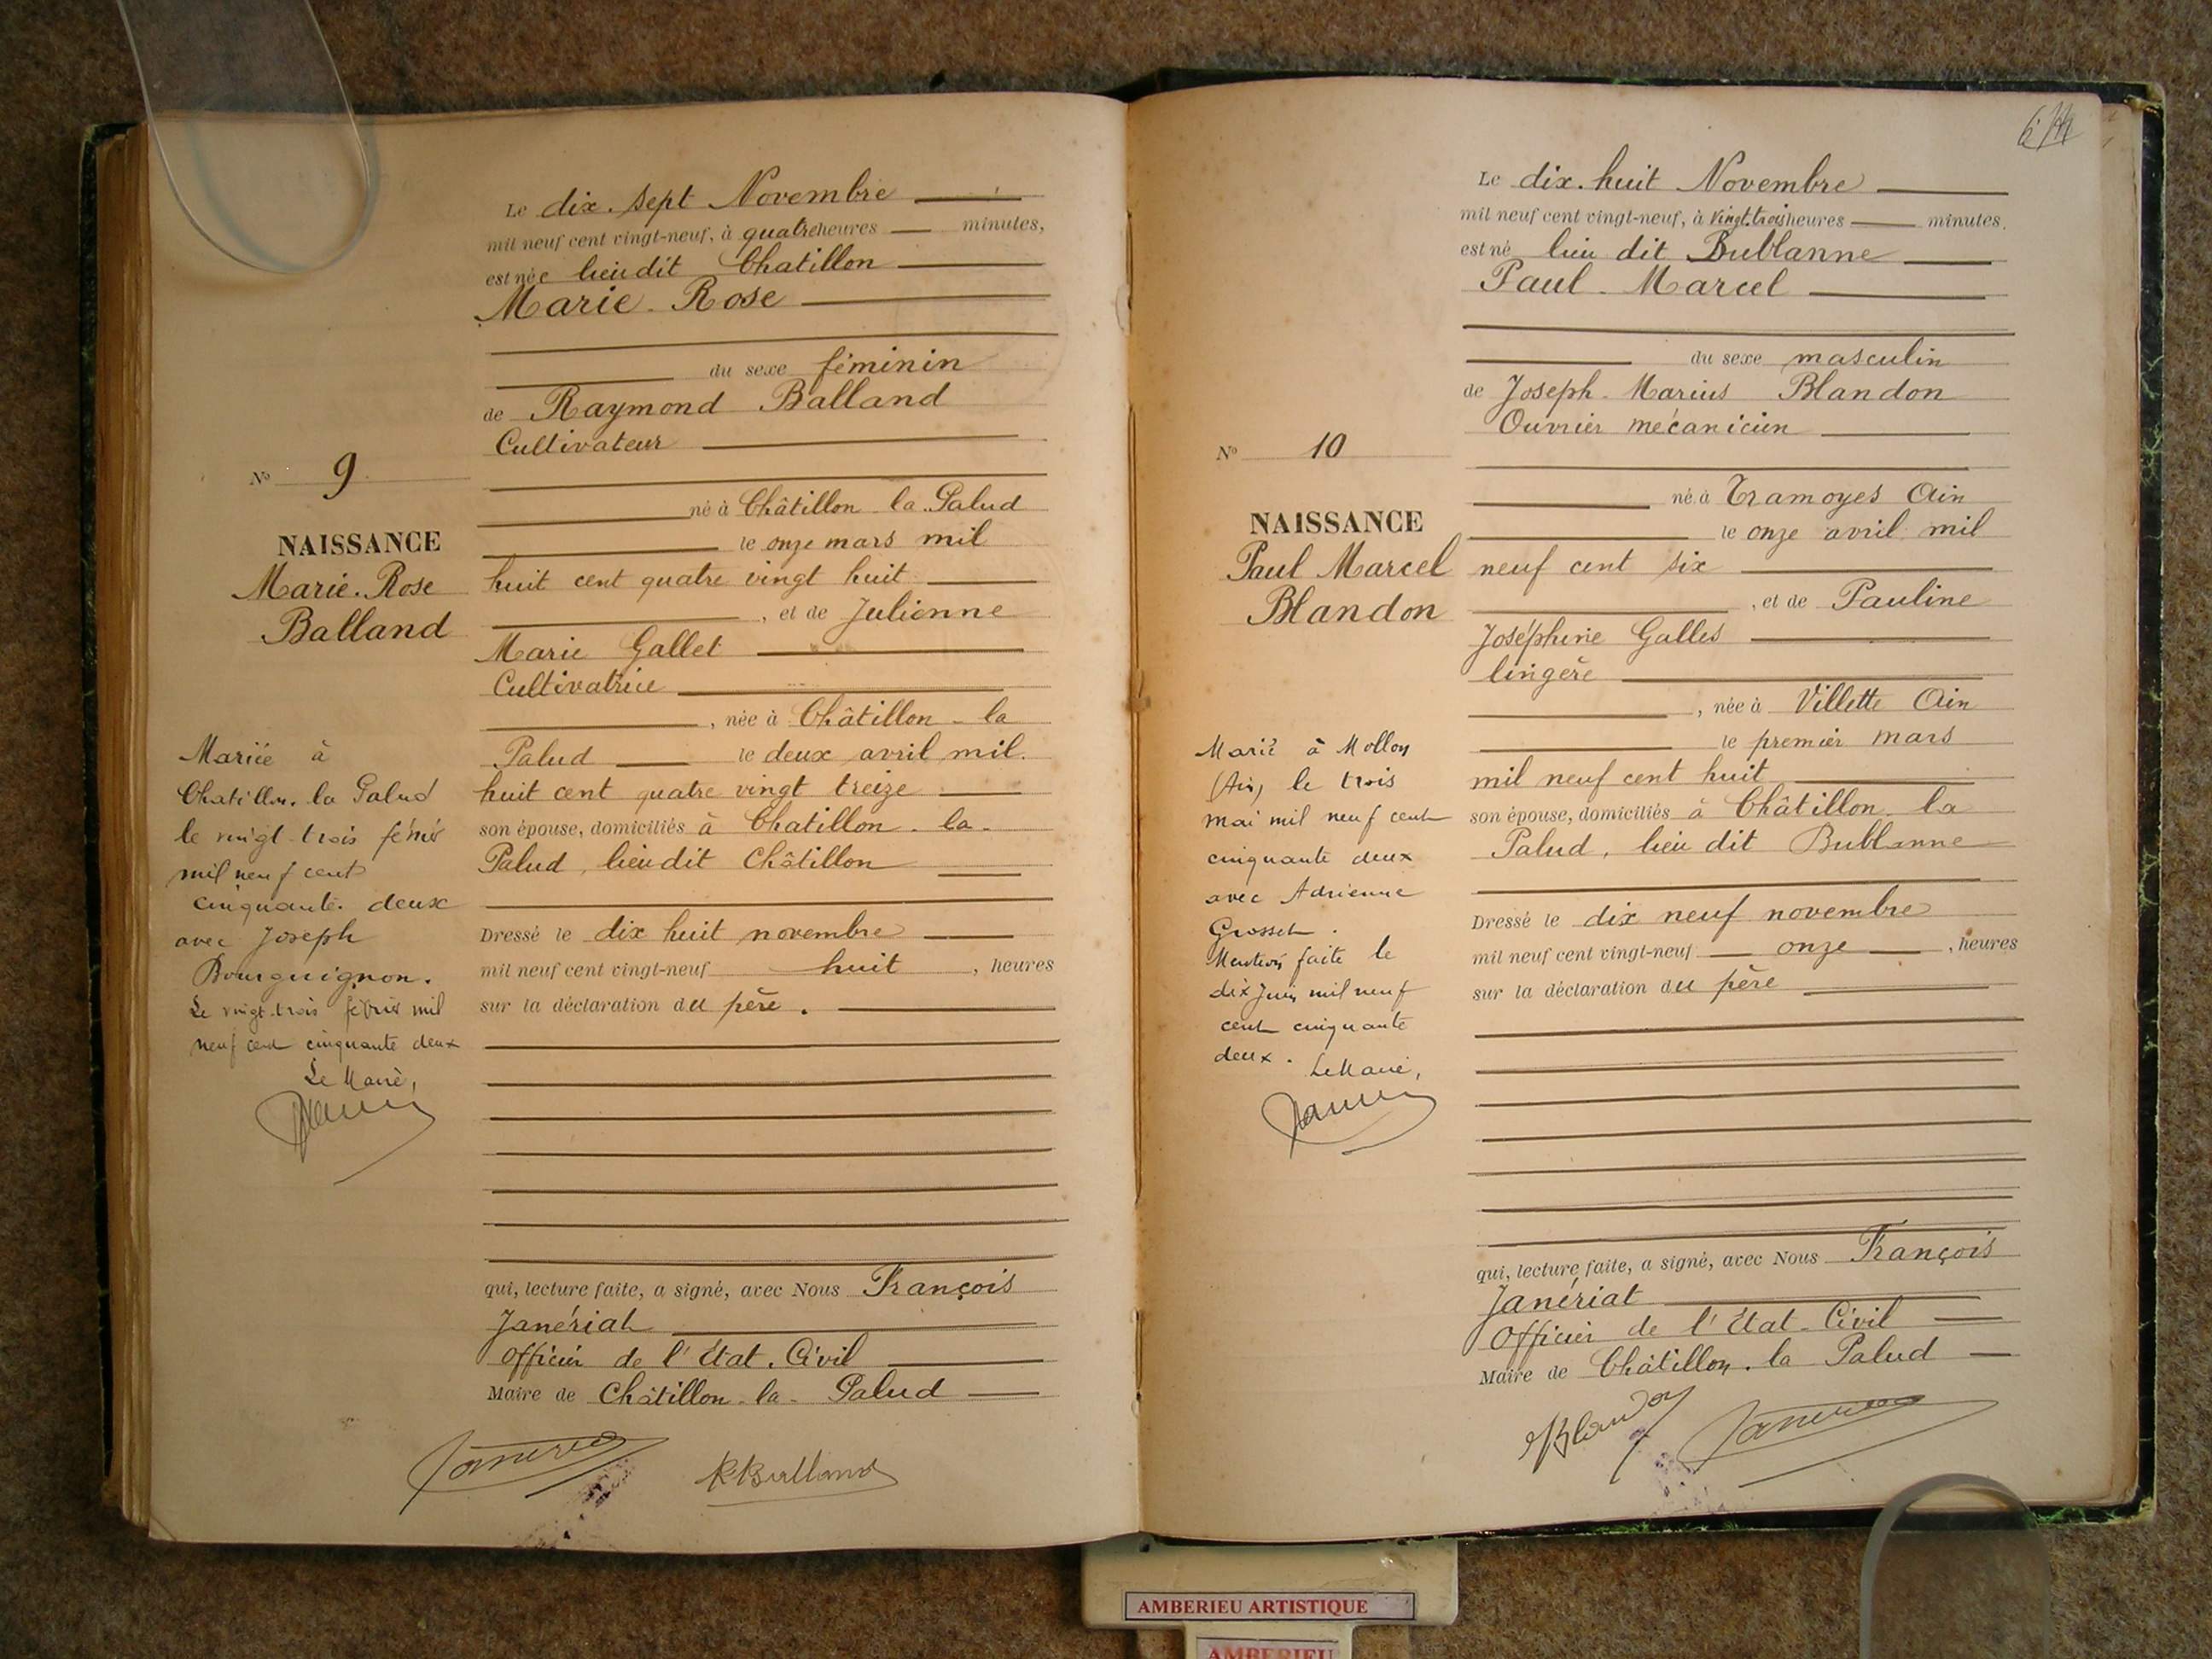 Le dix.sept Novembre
mil neuf cent vingt-neuf, à quatre heures minutes,
est née lieu dit Chatillon
Marie-Rose
du sexe féminin
de Raymond Balland
Cultivateur
né à Châtillon-la-Palud
le onze mars mil
huit cent quatre vingt huit
, et de Julienne
Marie Gallet
Cultivatrice
, née à Châtillon-la
Palud le deux avril mil.
huit cent quatre vingt treize
son épouse, domiciliés à Chatillon-la-
Palud, lieu dit Châtillon
Dressé le dix huit novembre
mil neuf cent vingt-neuf huit, heures
sur la déclaration du père.
qui, lecture faite, a signé, avec Nous François
Janériat
Officier de l'État-Civil
Maire de Châtillon-la-Palud
R Balland
N° 9
NAISSANCE
Marie-Rose
Balland
Mariée à
Chatillon-la Palud
le vingt-trois février
mil neuf cent
cinquante-deux
avec Joseph
Bourguignon.
Le vingt-trois février mil
neuf cent cinquante deux
Le Maire,
Le dix.huit Novembre
mil neuf cent vingt-neuf, à vingt.trois heures minutes,
est né lieu dit Bublanne
Paul-Marcel
du sexe masculin
de Joseph-Marius Blandon
Ouvrier mécanicien
né à Tramoyes Ain
le onze avril mil
neuf cent six
, et de Pauline
Joséphine Galles
lingère
, née à Villette Ain
le premier mars
mil neuf cent huit
son épouse, domiciliés à Châtillon-la
Palud, lieu dit Bublanne
Dressé le dix neuf novembre
mil neuf cent vingt-neuf onze, heures
sur la déclaration du père
qui, lecture faite, a signé, avec Nous François
Janériat
Officier de l'État-Civil
Maire de Châtillon-la Palud
Blandon
N° 10
NAISSANCE
Paul Marcel
Blandon
Marié à Mollon
(Ain) le trois
mai mil neuf cent
cinquante deux
avec Adrienne
Grosset.
Mention faite le
dix Juin mil neuf
cent cinquante
deux. Le Maire,
AMBERIEU ARTISTIQUE
AMBERIEU